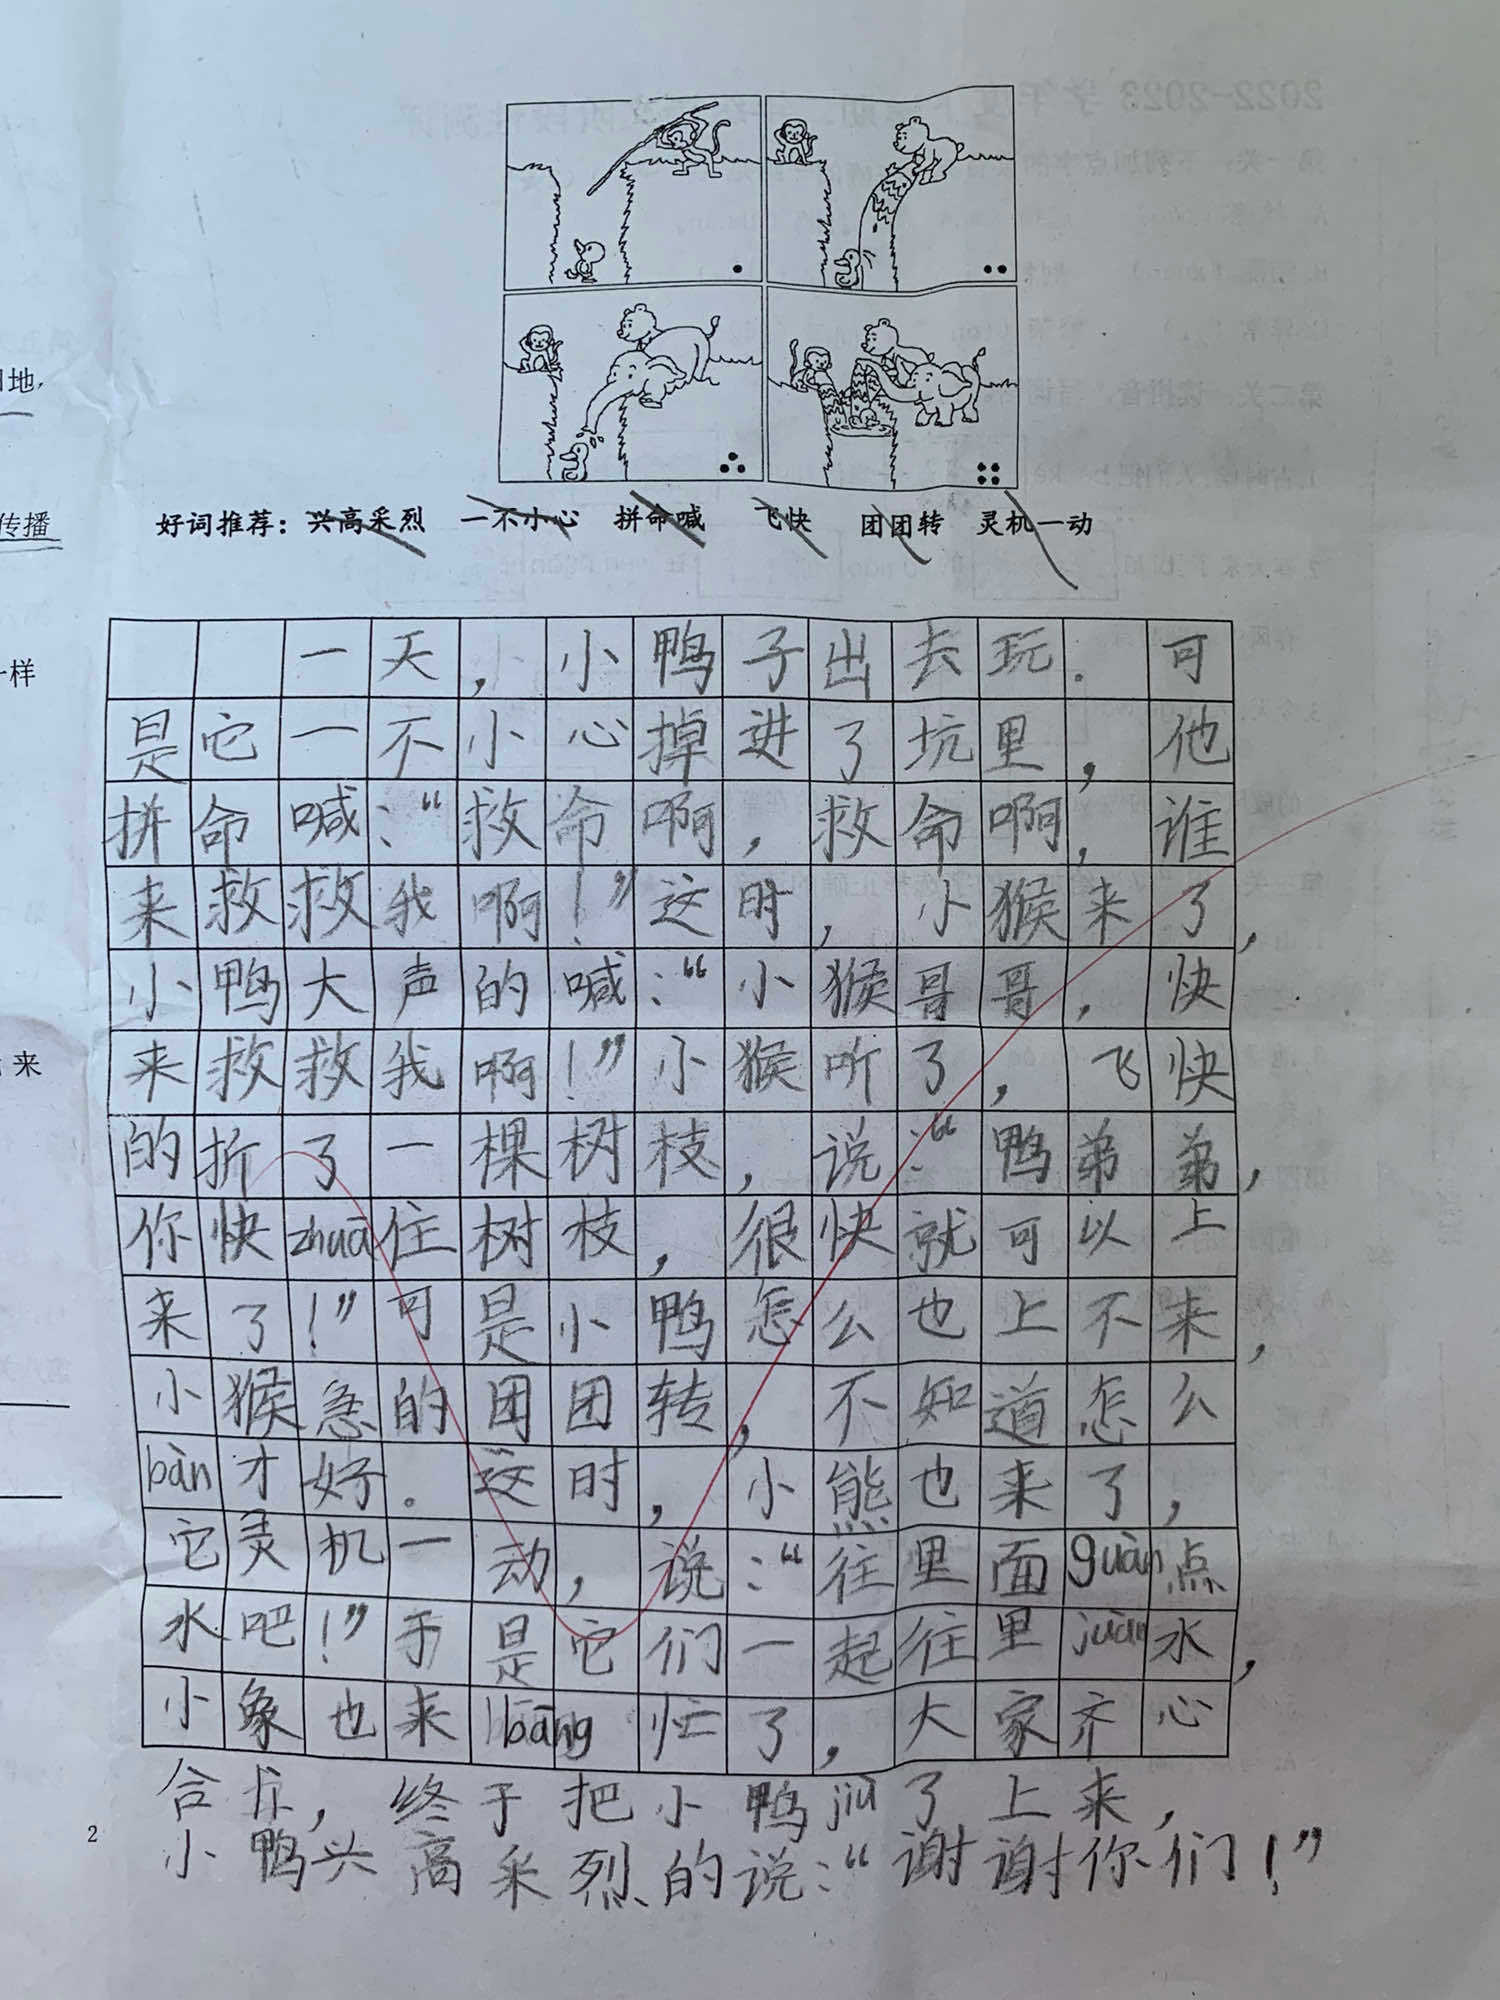 好词推荐：兴高采烈 一不小心 拼命喊 飞快 团团转 灵机一动
一天，小鸭子出去玩．可
是它一不小心掉进了坑里，他
拼命喊：“救命啊，救命啊，谁
来救救我啊！”这时，小猴来了，
小鸭大声的喊：“小猴哥哥，快
来救救我啊！”小猴听了，飞快
的折了一棵树枝，说：“鸭弟弟，
你快zhuā住树枝，很快就可以上
来了！”可是小鸭怎么也上不来，
小猴急的团团转，不知道怎么
bàn才好。这时，小熊也来了，
它灵机一动，说：“往里面guàn点
水吧！”于是它们一起往里juàn水，
小象也来bāng忙了，大家齐心
合力，终于把小鸭jiù了上来，
小鸭兴高采烈的说：“谢谢你们！”
2
地，
传播
样
来